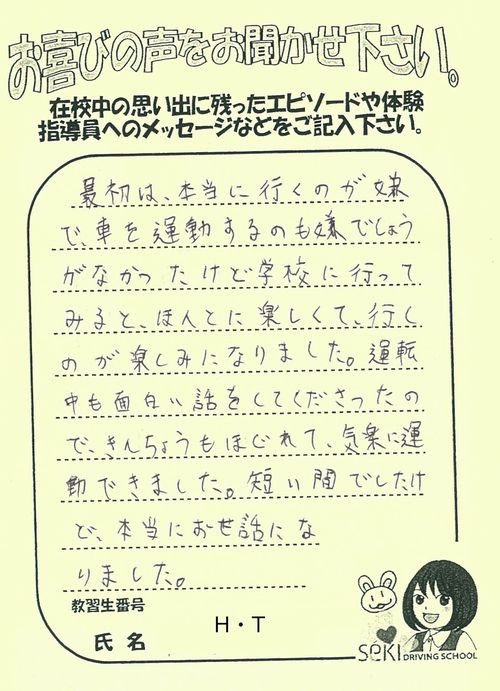 お喜びの声をお聞かせ下さい。
在校中の思い出に残ったエピソードや体験
指導員へのメッセージなどをご記入下さい。
最初は、本当に行くのが嫌
で、車を運動するのも嫌でしょう
がなかったけど学校に行って
みると、ほんとに楽しくて、行く
のが楽しみになりました。運転
中も面白い話をしてくださったの
で、きんちょうもほぐれて、気楽に運
動できました。短い間でしたけ
ど、本当にお世話にな
りました。
教習生番号
氏名
H・T
SEKI DRIVING SCHOOL